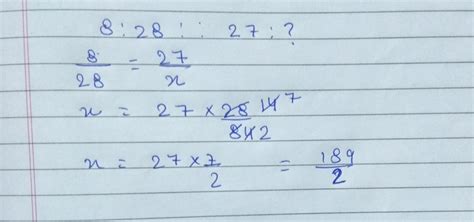 8 : 28 : : 27 : ?
8/28 = 27/x
x = 27 × 28 14 7 / 8 4 2
x = 27 × 7 / 2 = 189/2